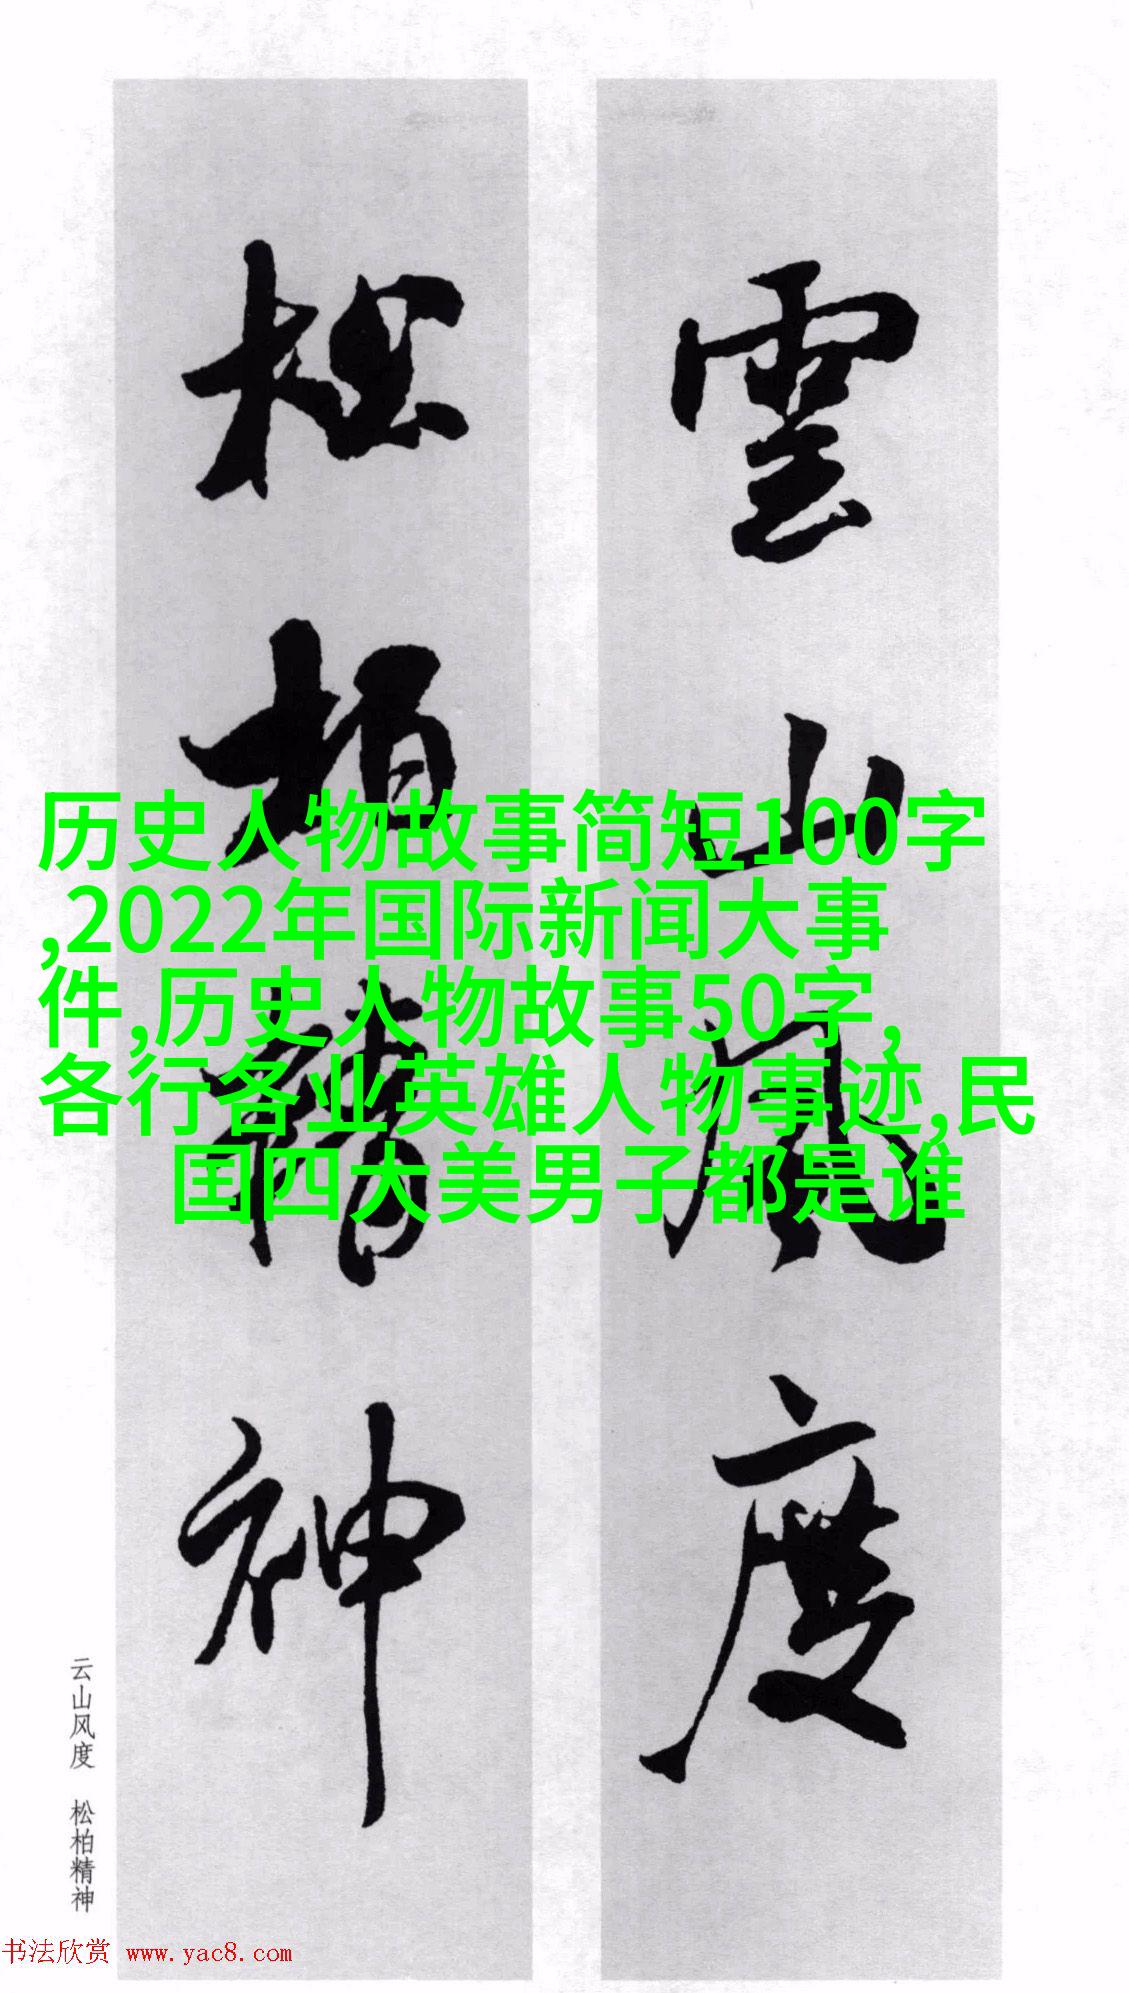 雲山風度
松柏精神
历史人物故事简短100字
,2022年国际新闻大事
件,历史人物故事50字,
各行各业英雄人物事迹,民
国四大美男子都是谁
云山风度 松柏精神
书法欣赏 www.yac8.com